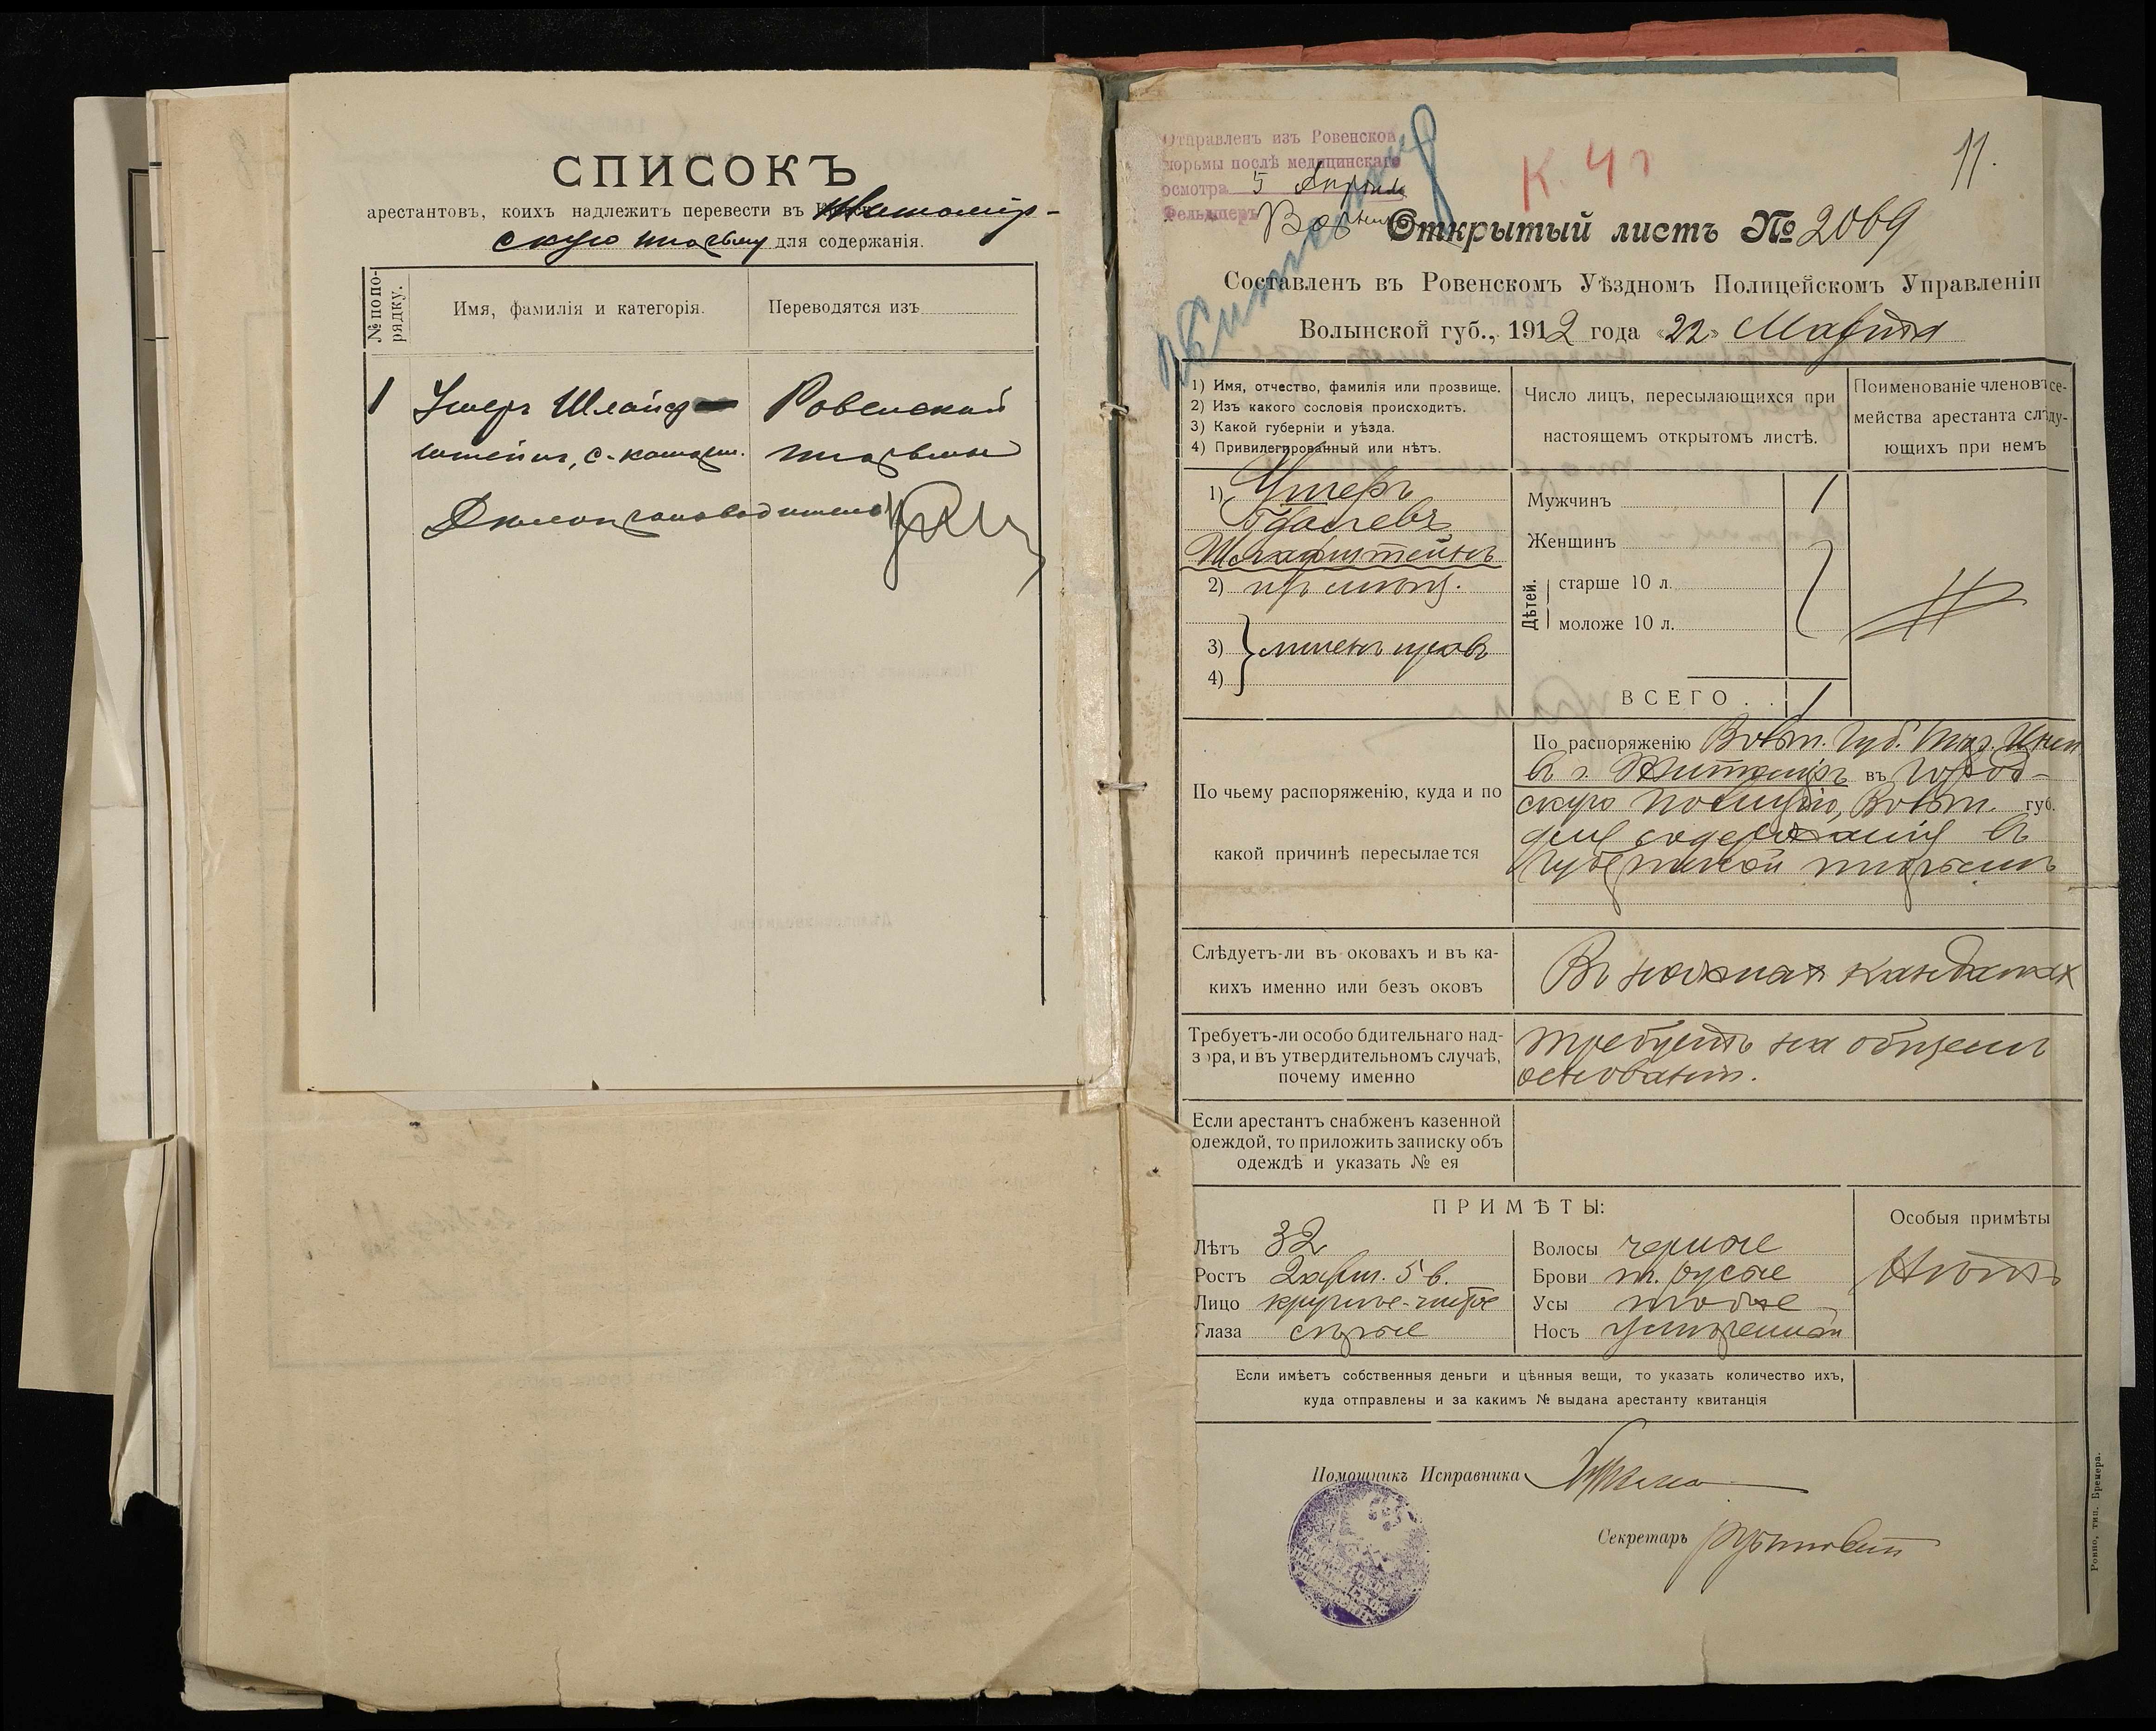 СПИСОКЪ
арестантовъ, коихъ надлежитъ перевести въ Житомір-
скую тюрьму для содержанія.
№ по по-
рядку.
Имя, фамилія и категорія.
Переводятся изъ
1
Ушеръ Шлайф
штейнъ, с.-каторж.
Ровенской
тюрьмы
Дѣлопроизводитель
Отправленъ изъ Ровенской
тюрьмы послѣ медицинскаго
осмотра 5 Апрѣля
Фельдшеръ
К. 41
11.
Открытый листъ № 2069
Составленъ въ Ровенскомъ Уѣздномъ Полицейскомъ Управленіи
Волынской губ., 1912 года «22» Марта
1) Имя, отчество, фамилія или прозвище.
2) Изъ какого сословія происходитъ.
3) Какой губерніи и уѣзда.
4) Привилегированный или нѣтъ.
Число лицъ, пересылающихся при
настоящемъ открытомъ листѣ.
Поименованіе членовъ се-
мейства арестанта слѣду-
ющихъ при немъ
1) Ушеръ
Шлайфштейнъ
2)
3) лишенъ правъ
4)
Мужчинъ 1
Женщинъ
Дѣтей.
старше 10 л.
моложе 10 л.
ВСЕГО . . 1
По чьему распоряженію, куда и по
какой причинѣ пересылается
По распоряженію Волын. Губ. Тюр. Инсп
въ г. Житомиръ въ Город-
скую полицію, Волын. губ.
для содержанія въ
Губернской тюрьмѣ
Слѣдуетъ-ли въ оковахъ и въ ка-
кихъ именно или безъ оковъ
Въ ножныхъ кандалахъ
Требуетъ-ли особо бдительнаго над-
зора, и въ утвердительномъ случаѣ,
почему именно
требуетъ на общемъ
основаніи.
Если арестантъ снабженъ казенной
одеждой, то приложить записку объ
одеждѣ и указать № ея
ПРИМѢТЫ:
Особыя примѣты
Лѣтъ 32
Ростъ 2 арш. 5 в.
Лицо круглое-чистое
Глаза сѣрые
Волосы черные
Брови т. русые
Усы тоже
Носъ умѣренный
Нѣтъ
Если имѣетъ собственныя деньги и цѣнныя вещи, то указать количество ихъ,
куда отправлены и за какимъ № выдана арестанту квитанція
Помощникъ Исправника
Секретарь
Ровно, тип. Бремера.